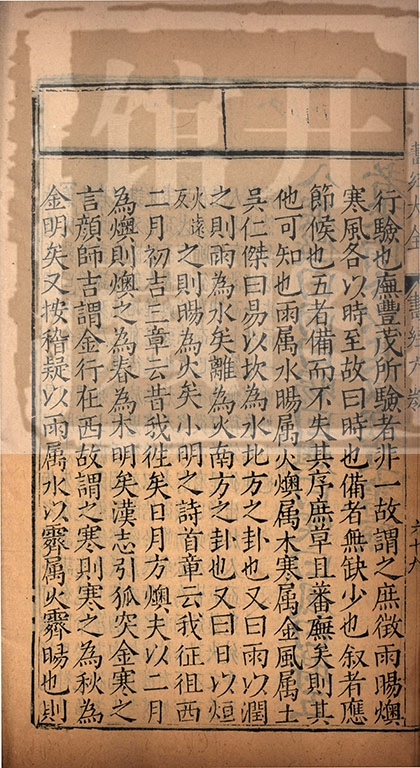 行驗也廡豐茂所驗者非一故謂之庶徵雨暘燠
寒風各以時至故曰時也備者無缺少也叙者應
節候也五者備而不失其序庶草且蕃廡矣則其
他可知也雨属水暘属火燠属木寒属金風属土
吳仁傑曰易以坎為水北方之卦也又曰雨以潤
之則雨為水矣離為火南方之卦也又曰日以烜
火遠反之則暘為火矣小明之詩首章云我征徂西
二月初吉三章云昔我往矣日月方燠夫以二月
為燠則燠之為春為木明矣漢志引狐突金寒之
言顔師古謂金行在西故謂之寒則寒之為秋為
金明矣又按稽疑以雨属水以霽属火霽暘也則